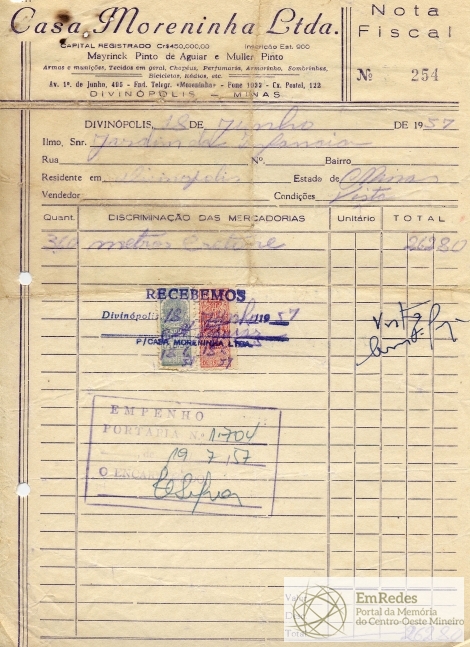 Casa Moreninha Ltda.
CAPITAL REGISTRADO Cr$450,000,00 Inscrição Est. 900
Mayrinck Pinto de Aguiar e Muller Pinto
Armas e munições, Tecidos em geral, Chapéus, Perfumaria, Armarinho, Sombrinhas,
Bicicletas, Rádios, etc.
Av. 1º. de junho, 485 - End. Telegr. «Moreninha» - Fone 1022 - Cx. Postal, 122
DIVINÓPOLIS - MINAS
Nota
Fiscal
Nº 254
DIVINÓPOLIS, 18 DE Junho DE 1957
Ilmo, Snr. Jardim da Infancia
Rua Nº. Bairro
Residente em Divinopolis Estado de Minas
Vendedor Condições Vista
Quant. DISCRIMINAÇÃO DAS MERCADORIAS Unitário TOTAL
metros 26280
RECEBEMOS
Divinópolis 18 1957
P/CASA MORENINHA LTDA.
EMPENHO
PORTARIA Nº 1704
19 7 57
O ENCAR
Total 26280
EmRedes
Portal da Memória
do Centro-Oeste Mineiro